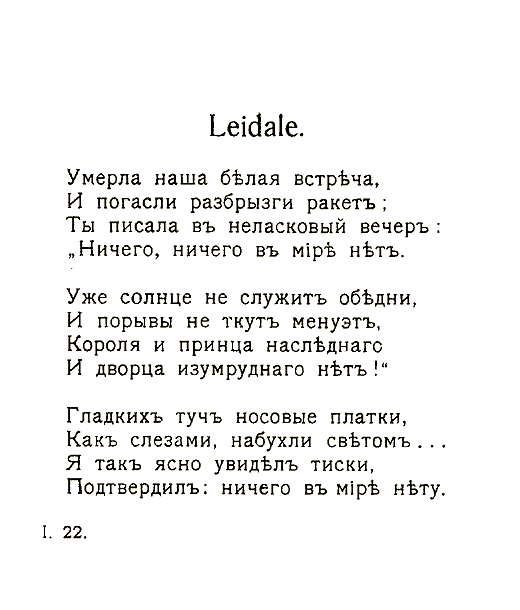 Leidale.
Умерла наша бѣлая встрѣча,
И погасли разбрызги ракетъ;
Ты писала въ неласковый вечеръ:
„Ничего, ничего въ мірѣ нѣтъ.
Уже солнце не служитъ обѣдни,
И порывы не ткутъ менуэтъ,
Короля и принца наслѣднаго
И дворца изумруднаго нѣтъ!“
Гладкихъ тучъ носовые платки,
Какъ слезами, набухли свѣтомъ...
Я такъ ясно увидѣлъ тиски,
Подтвердилъ: ничего въ мірѣ нѣту.
I. 22.